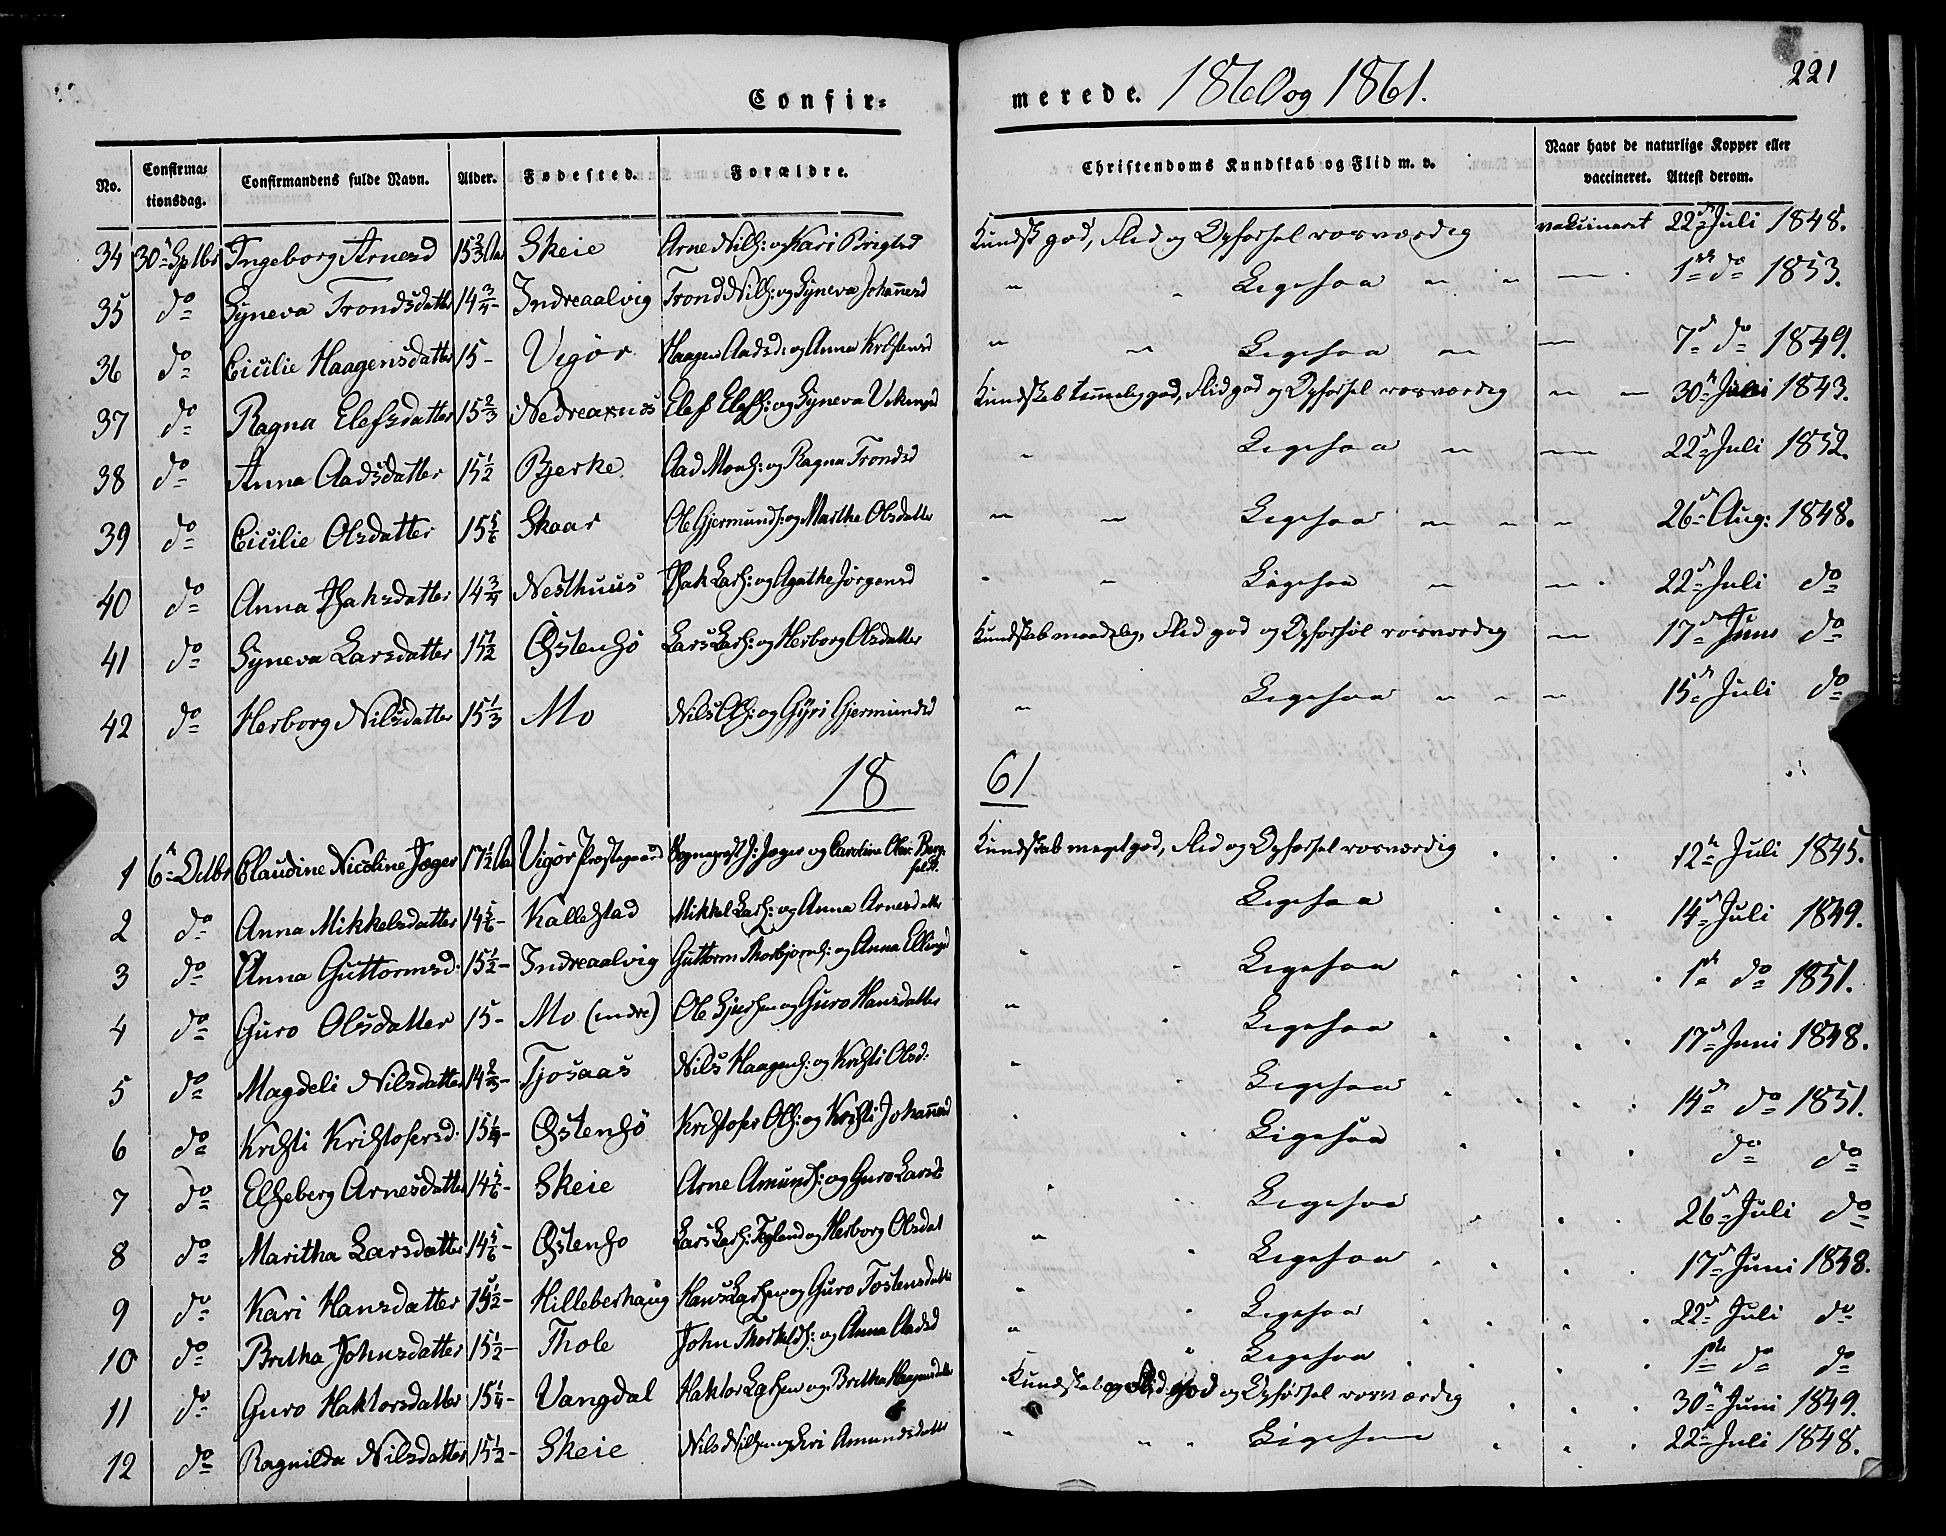 Confirmerede. 1860 og 1861.
221
No. Confirmationsdag. Confirmandens fulde Navn. Alder. Fødested. Forældre. Christendoms Kundskab og Flid m. v. Naar havt de naturlige Kopper eller vaccineret. Attest derom.
34 30 Sptbr Ingeborg Arnesd 15 2/3 Aar Skeie Arne Nilss: og Kari Brigtsd Kundsk god, Flid og Opførsel rosværdig vakcineret 22 Juli 1848.
35 do Syneva Trondsdatter 14 3/4 - Indreaalvig Trond Nilss: og Syneva Johannesd " " Ligesaa " " — 1ste do 1853.
36 do Cicilie Haagensdatter 15 - Vigør Haagen Aadss: og Anna Kristensd " " Ligesaa " — 7 do 1849.
37 do Ragna Elefsdatter 15 2/3 Nedreaxnes Elef Elefs: og Syneva Vikingsd Kundskab temmelig god, Flid god og Opførsel rosværdig " — 30 Juni 1843.
38 do Anna Aadsdatter 15 1/2 Bjerke Aad Mons: og Ragna Trondsd " Ligesaa " — 22 Juli 1852.
39 do Cicilie Olsdatter 15 5/6 Skaar Ole Gjermunds: og Martha Olsdatter " " Ligesaa " " " 26 Aug: 1848.
40 do Anna Isaksdatter 14 3/4 Nesthuus Isak Larss: og Agatha Jørgensd " " Ligesaa " — 22 Juli do
41 do Syneva Larsdatter 17 1/2 Østensø Lars Larss: og Herborg Olsdatter Kundskab maadelig, Flid god og Opførsel rosværdig — 17 Juni do
42 do Herborg Nilsdatter 15 1/3 Mo Nils Ols: og Gyri Gjermundsd " Ligesaa " " " 15 Juli do
18 61
1 6 Octbr Claudine Nicoline Jæger 17 1/2 Aar Vigør Præstegaard Sognepræst J: Jæger og Caroline Berg Kundskab meget god, Flid og Opførsel rosværdig 12 Juli 1845.
2 do Anna Mikkelsdatter 14 5/6 - Kallestad Mikkel Larss: og Anna Arnesdatter Ligesaa 14 Juli 1849.
3 do Anna Guttormsd. 15 1/2 - Indreaalvig Guttorm Thorbjørns: og Anna Ellingsd " Ligesaa 1ste do 1851.
4 do Guro Olsdatter 15 - Mo (indre) Ole og Guro Hansdatter " Ligesaa 17 Juni 1848.
5 do Magdeli Nilsdatter 14 2/3 - Tjosaas Nils Haagens: og Kristi Olsd: " Ligesaa 14 do 1851.
6 do Kristi Kristofersd. 15 1/4 - Østensø Kristofer Ols: og Kristi Johannesd Ligesaa do do
7 do Elseberg Arnesdatter 14 5/6 - Skeie Arne Amunds: og Guro Larsd " Ligesaa 26 Juli do
8 do Maritha Larsdatter 14 5/6 - Østensø Lars Larss: og Herborg Olsdat " Ligesaa 17 Juni 1848.
9 do Kari Hansdatter 15 1/2 - Hilleberhaug Hans Larsen og Guro Tostensdatter " Ligesaa 22 Juli do
10 do Britha Johnsdatter 15 1/2 - Thole John Thorkelds: og Anna Aadsd " Ligesaa 1ste do do
11 do Guro Haktorsdatter 15 1/4 - Vangdal Haktor Larsen og Britha Haagensdatter Kundskab og Flid god og Opførsel rosværdig 30 Juni 1849.
12 do Ragnilda Nilsdatter 15 1/2 - Skeie Nils Nilsen og Siri Amundsdatter " " " Ligesaa 22 Juli 1848.